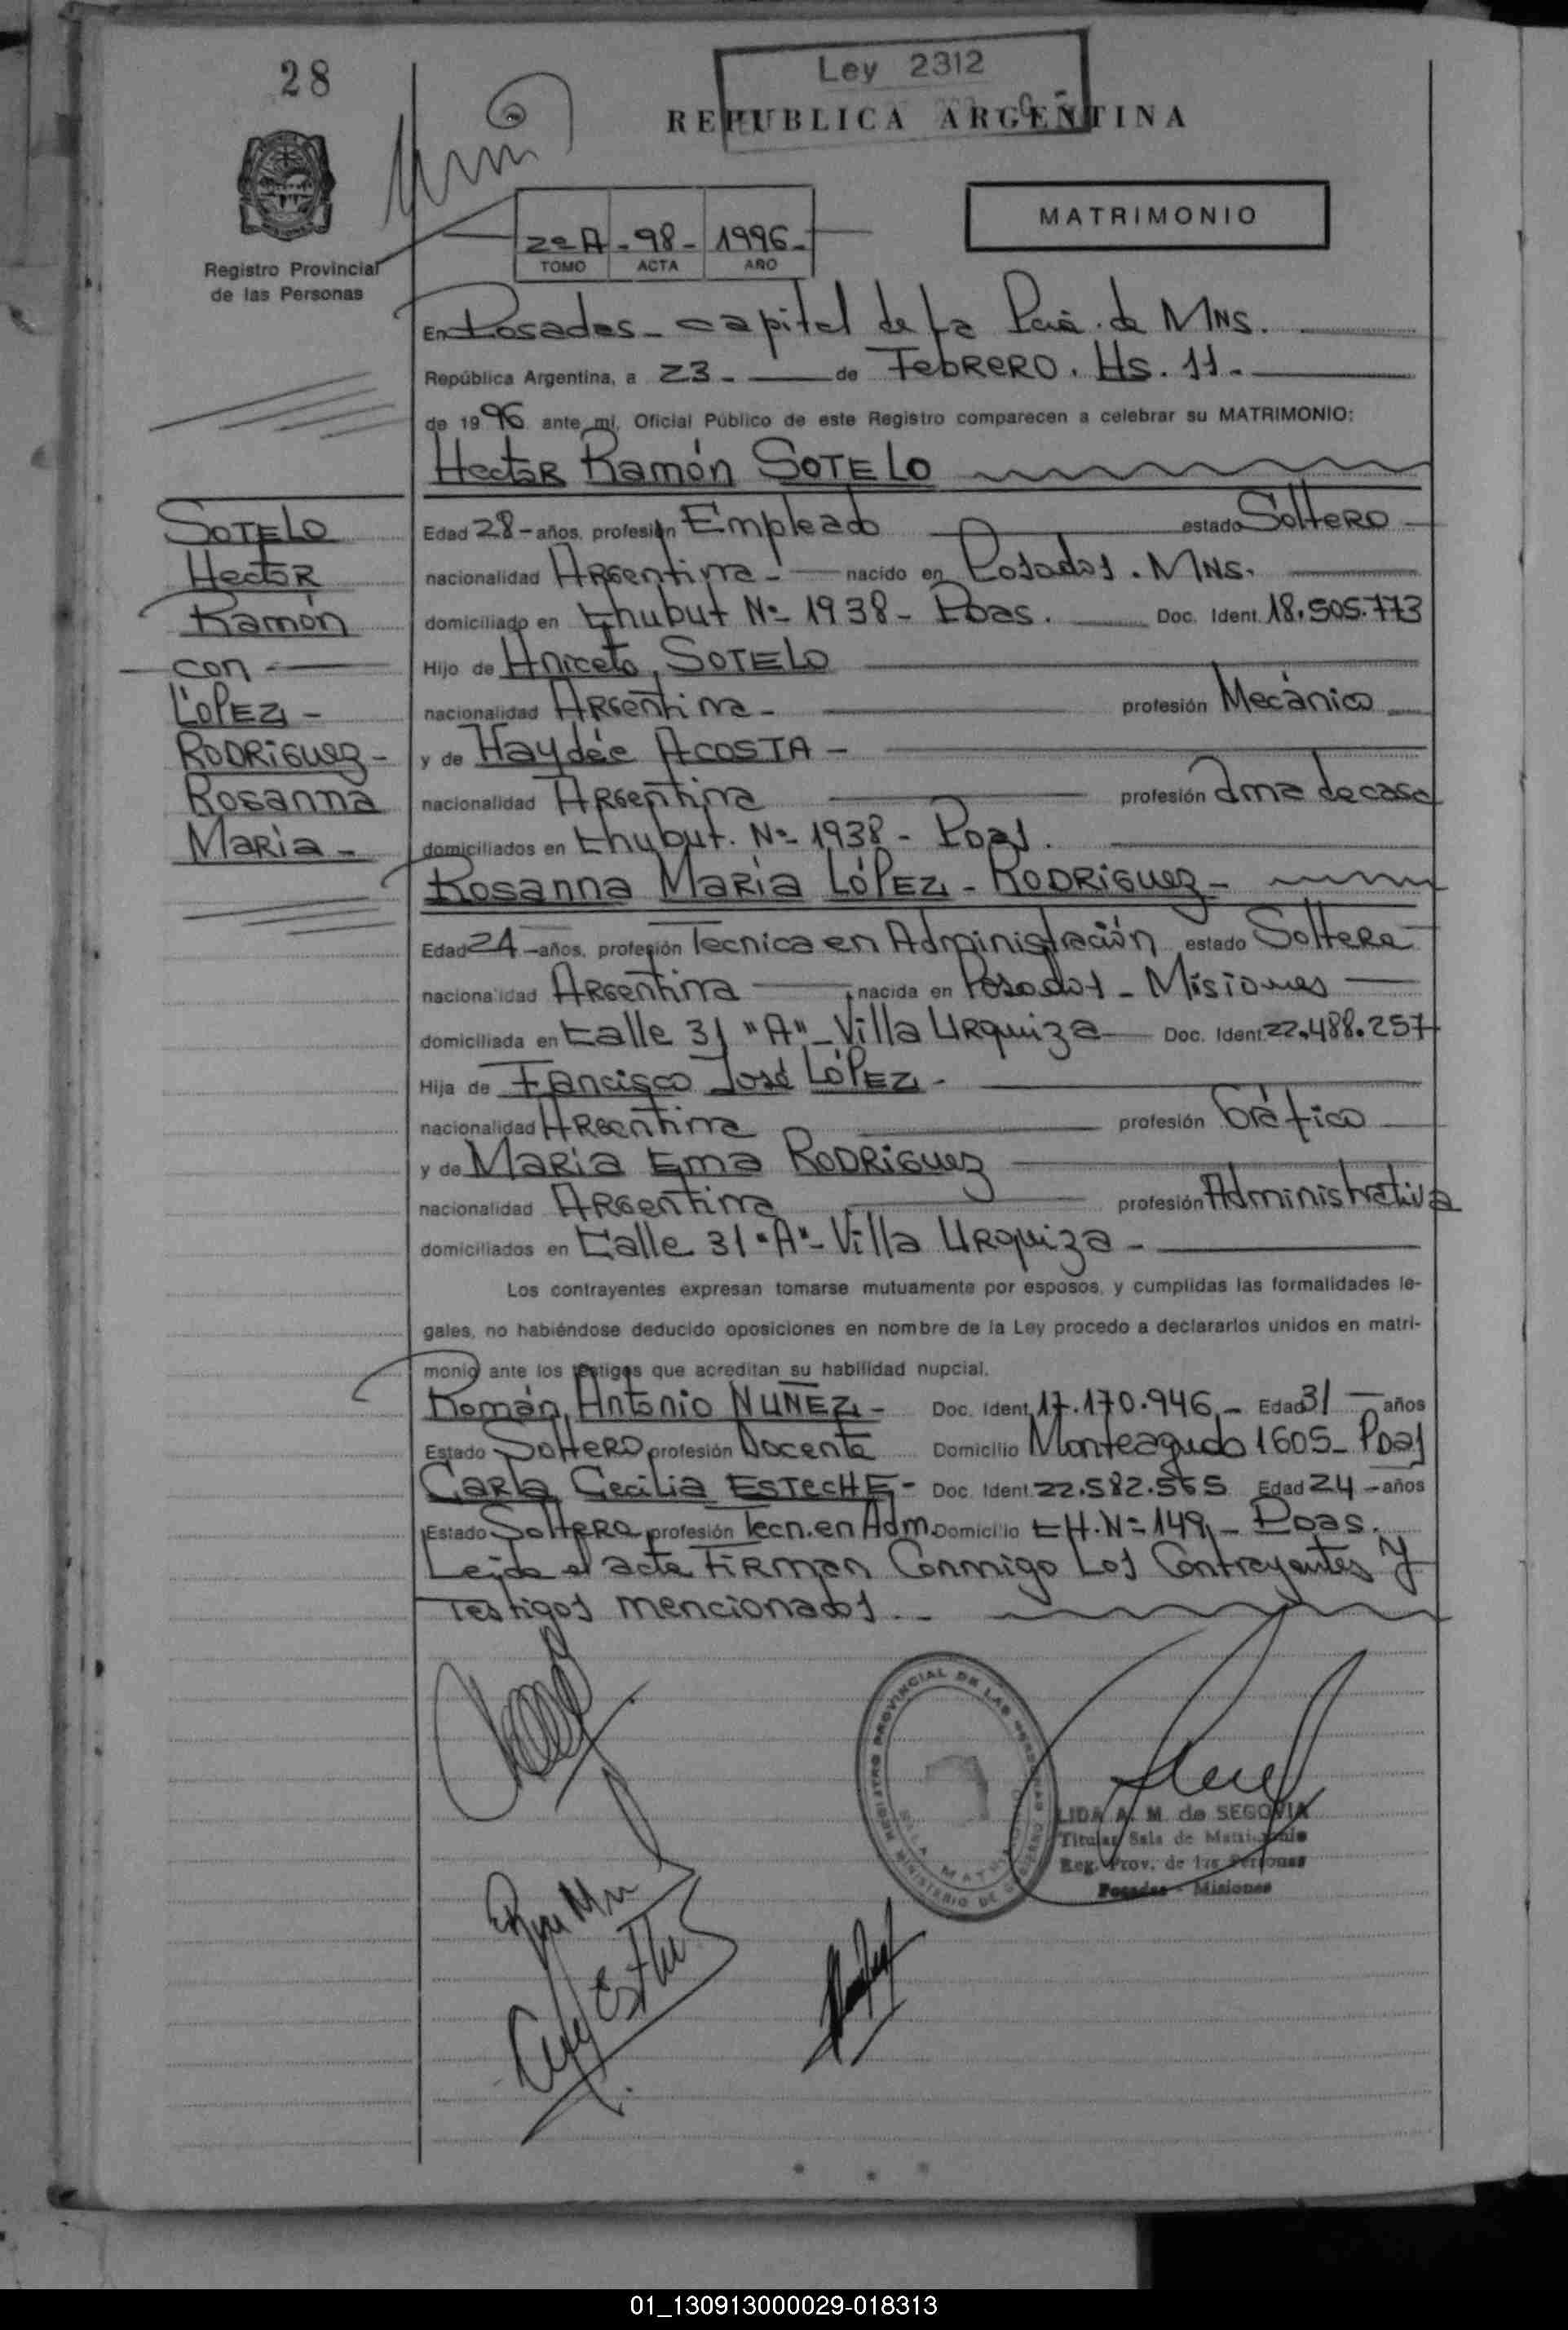 28
Ley 2312
REPUBLICA ARGENTINA
MATRIMONIO
2º A - 98 - 1996 -
TOMO ACTA AÑO
Registro Provincial
de las Personas
En Posadas - Capital de la Pcia. de MNS.
República Argentina, a 23 - de FebRERO. Hs. 11 -
de 1996 ante mí, Oficial Público de este Registro comparecen a celebrar su MATRIMONIO:
HectoR Ramón SOTELO
SOTELO
HectoR
Ramón
con
LÓPEZ -
RODRiGuez -
Rosanna
MaRía -
Edad 28 - años, profesión Empleado estado SolteRO
nacionalidad ARGentina - nacido en Posadas. MNS.
domiciliado en Chubut Nº 1938 - Pdas. Doc. Ident. 18.505.773
Hijo de Aniceto, SOTELO
nacionalidad ARGentina - profesión Mecánico
y de Haydée ACOSTA -
nacionalidad ARGentina profesión Ama de casa
domiciliados en Chubut. Nº 1938 - Pdas.
Rosanna MaRía LÓPEZ - RODRiGuez -
Edad 24 - años, profesión Tecnica en Administración estado SolteRa
nacionalidad ARGentina nacida en Posadas - Misiones
domiciliada en Calle 31 "A" - Villa URquiza Doc. Ident. 22.488.257
Hija de Fancisco José LÓPEZ -
nacionalidad ARGentina profesión Gráfico
y de MaRía Ema RODRiGuez
nacionalidad ARGentina profesión Administrativa
domiciliados en Calle 31 "A" - Villa URquiza -
Los contrayentes expresan tomarse mutuamente por esposos, y cumplidas las formalidades le-
gales, no habiéndose deducido oposiciones en nombre de la Ley procedo a declararlos unidos en matri-
monio ante los testigos que acreditan su habilidad nupcial.
Román, Antonio NUÑEZ - Doc. Ident. 17.170.946 - Edad 31 años
Estado SolteRO profesión Docente Domicilio Monteagudo 1605 - Pdas
CaRla, Cecilia ESTECHE - Doc. Ident. 22.582.565 Edad 24 - años
Estado SolteRa profesión Tecn. en Adm. Domicilio CH. Nº 149 - Pdas.
Leída el acta FiRman Conmigo Los Contrayentes y
Testigos mencionados. -
REGISTRO PROVINCIAL DE LAS PERSONAS
MINISTERIO DE GOBIERNO
LIDA A. M. de SEGOVIA
Titular Sala de Matrimonio
Reg. Prov. de las Personas
Posadas - Misiones
01_130913000029-018313